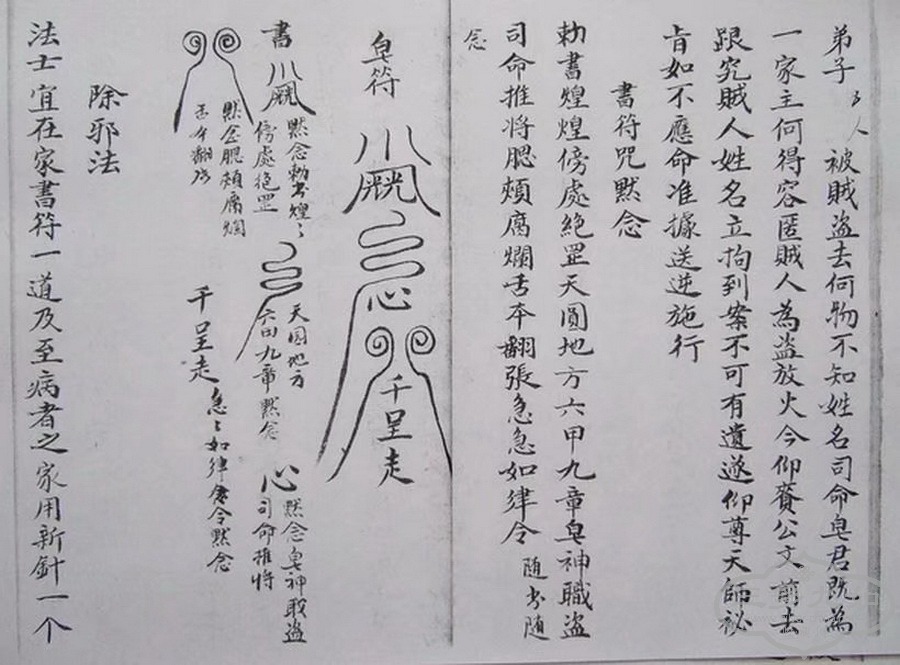 弟子ㄋ人被賊盗去何物不知姓名司命皂君既為
一家主何得容匿賊人為盗放火今仰賫公文前去
跟究賊人姓名立拘到案不可有遺遂仰尊天師祕
旨如不應命准據送逆施行
書符咒默念
勅書煌煌傍處絶罡天圓地方六甲九章皂神職盗
司命推将腮頰腐爛舌本翻張急急如律令 随书随
念
皂符
心
千呈走
書
默念勅书煌〻
傍處絶罡
天圆地方
六甲九章默念
心
默念皂神職盗
司命推将
默念腮頰腐爛
舌本翻張
千呈走
急〻如律令默念
除邪法
法士宜在家書符一道及至病者之家用新針一个